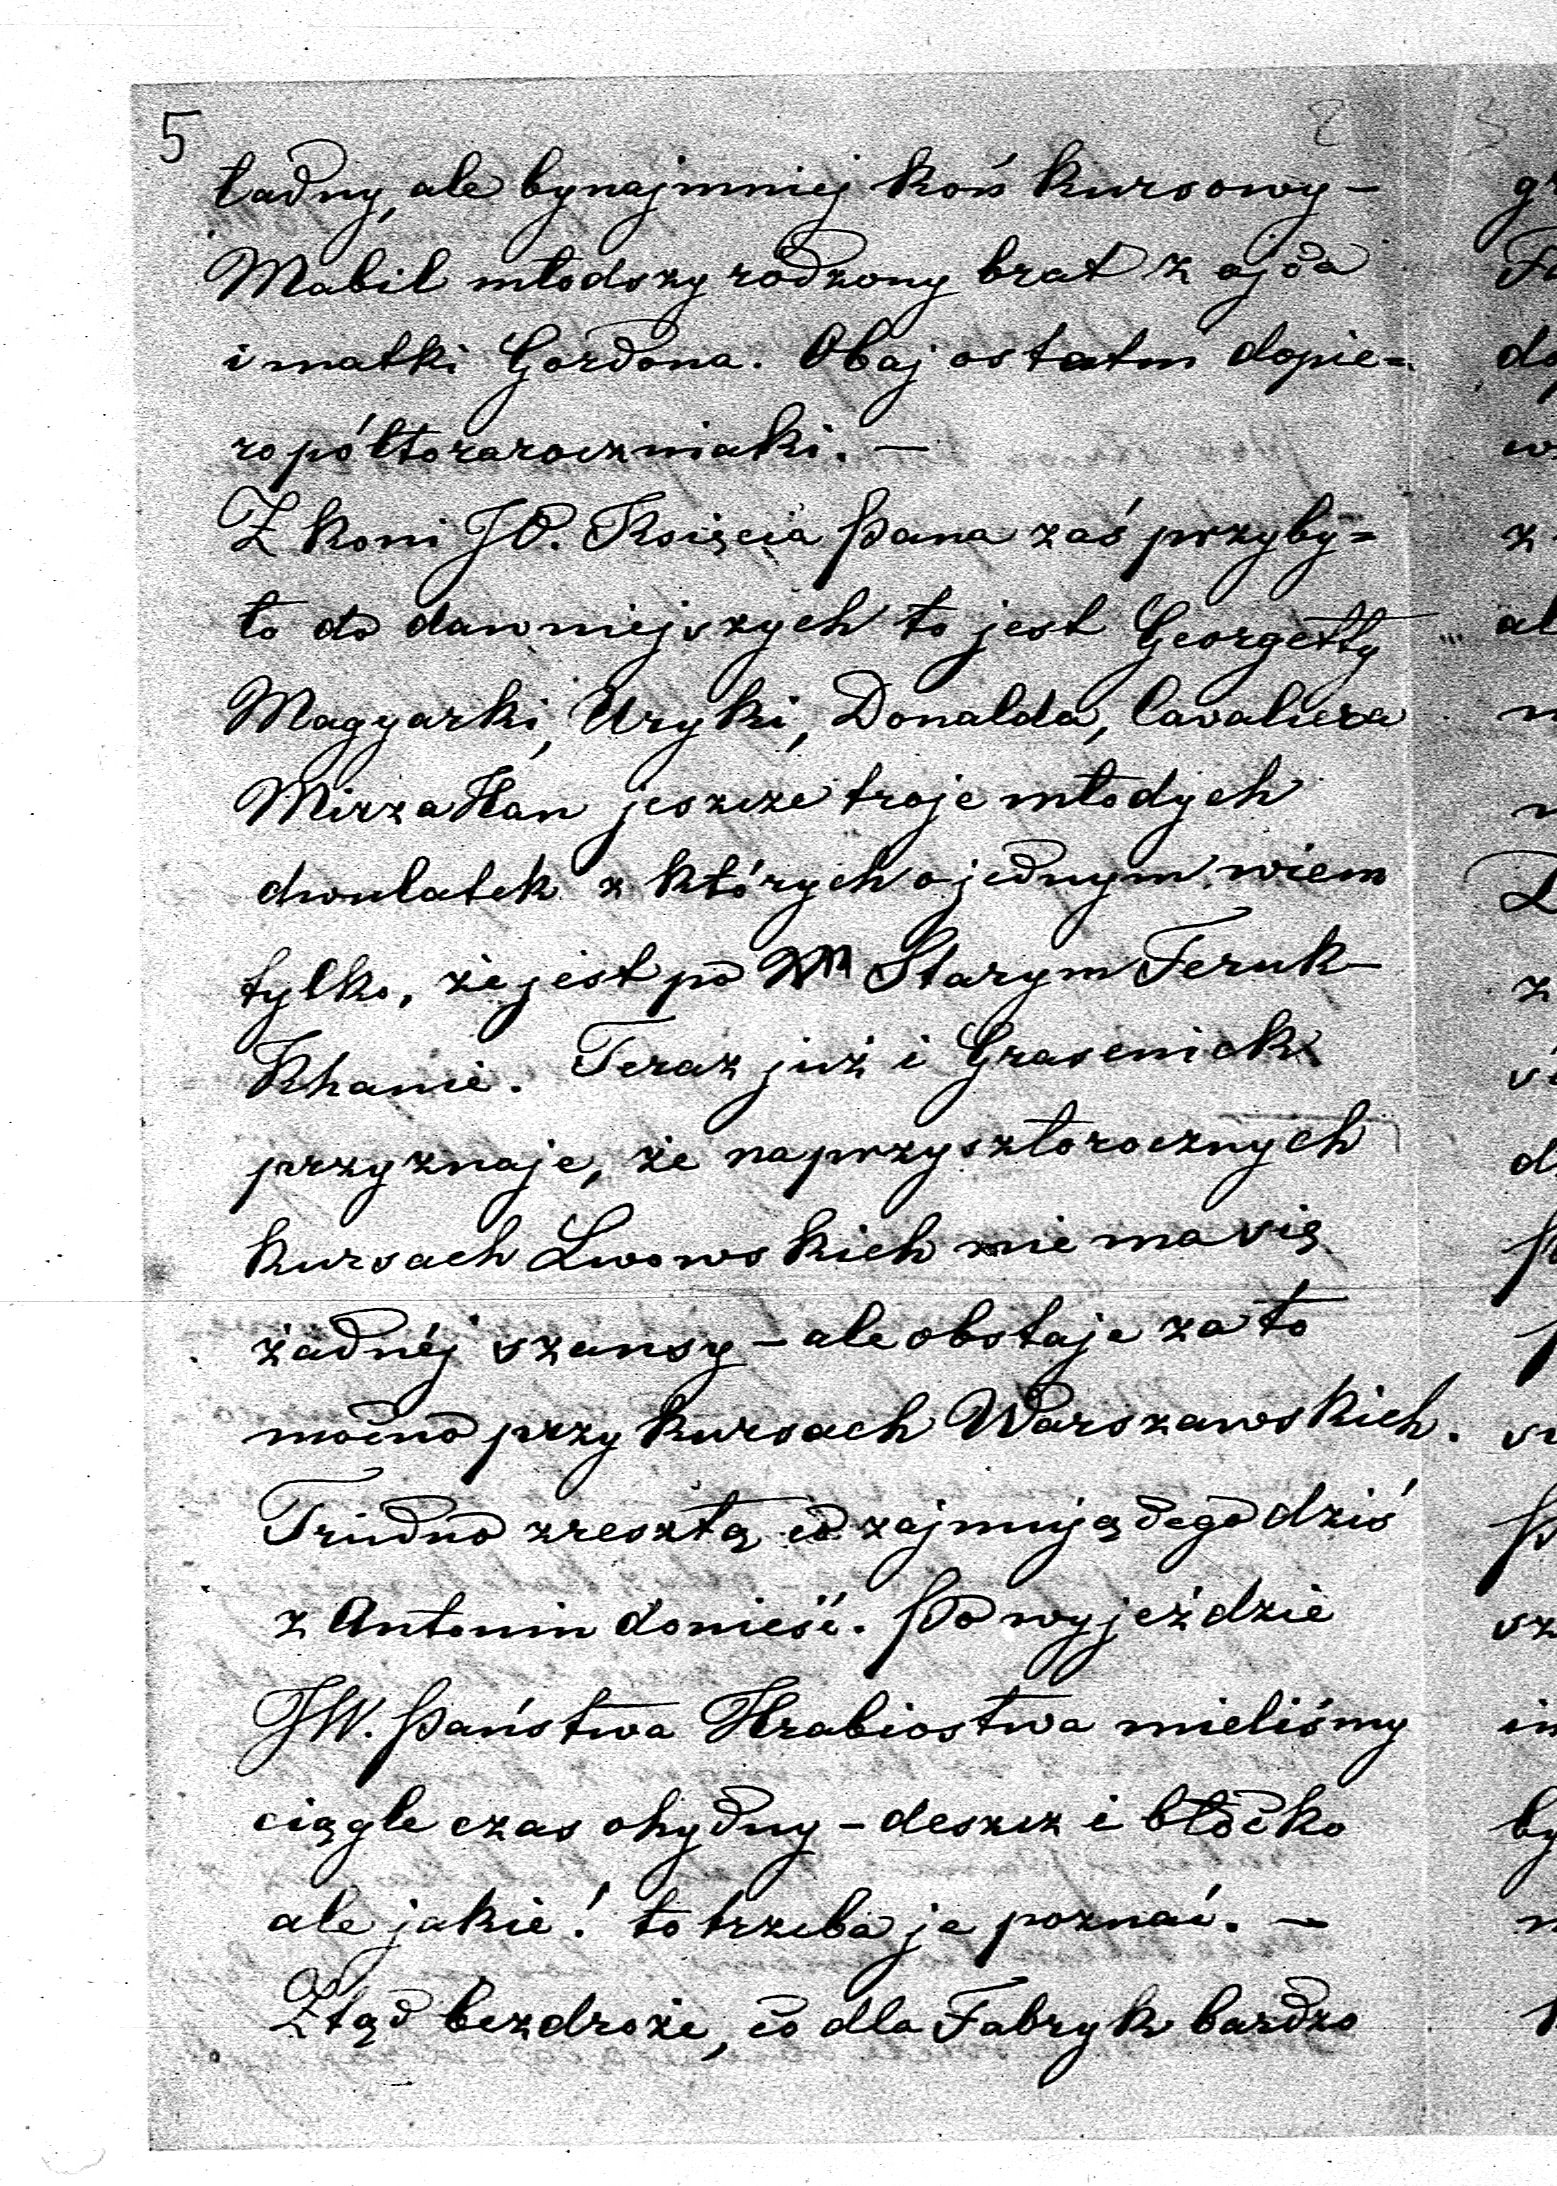 5
ładny, ale bynajmniej koń kursowy –
Mabil młodszy rodzony brat z ojca
i matki Gordona. Obaj ostatni dopie=
ro półtoraroczniaki. –
Z koni JO. Księcia Pana zaś przyby=
ło do dawniejszych to jest Georgetty
Magyarki, Uryki, Donalda, Cavaliera
Mirza Han jeszcze troje młodych
dwulatek z których o jednym wiem
tylko, że jest po Starym Feruk-
Khanie. Teraz już i Grasenick
przyznaje, że na przyszłorocznych
kursach Lwowskich nie ma się
żadnéj szansy – ale obstaje za to
mocno przy kursach Warszawskich.
Trudno zresztą co zajmującego dziś
z Antonin donieść. Po wyjeździe
JW. Państwa Hrabiostwa mieliśmy
ciągle czas ohydny – deszcz i błocko
ale jakie! to trzeba je poznać. –
Ztąd bezdroże, co dla Fabryk bardzo